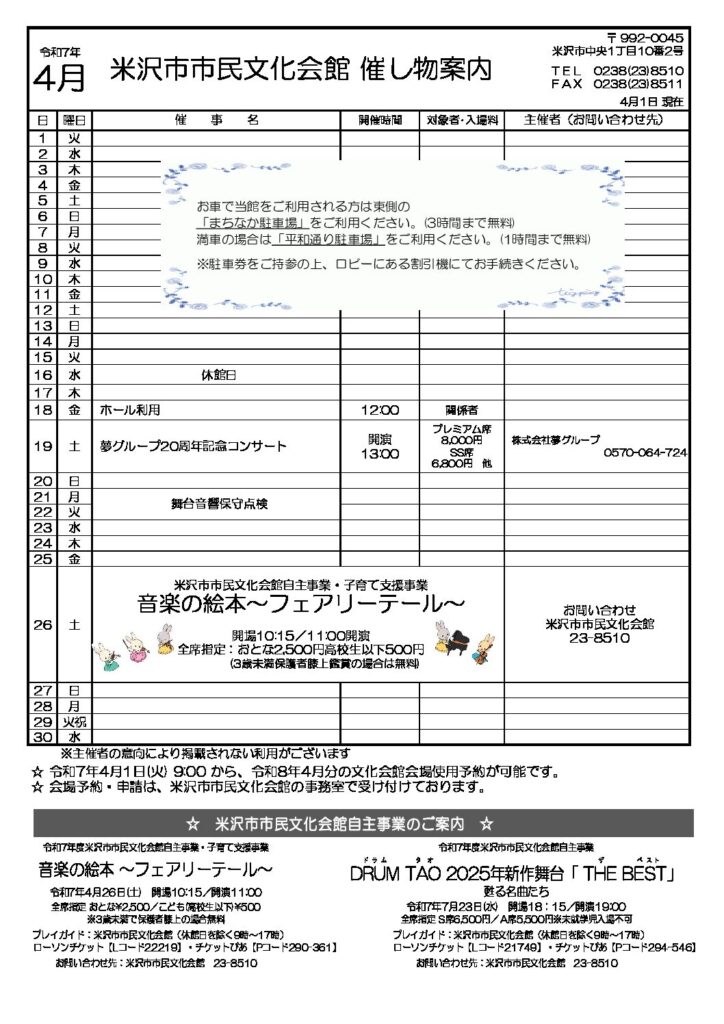 令和7年
4月
米沢市市民文化会館 催し物案内
〒992-0045
米沢市中央1丁目10番2号
TEL 0238(23)8510
FAX 0238(23)8511
4月1日 現在
日 曜日 催 事 名 開催時間 対象者・入場料 主催者（お問い合わせ先）
1 火
2 水
3 木
4 金
5 土
6 日
7 月
8 火
9 水
10 木
11 金
12 土
お車で当館をご利用される方は東側の
「まちなか駐車場」をご利用ください。(3時間まで無料)
満車の場合は「平和通り駐車場」をご利用ください。(1時間まで無料)
※駐車券をご持参の上、ロビーにある割引機にてお手続きください。
13 日
14 月
15 火
16 水 休館日
17 木
18 金 ホール利用 12:00 関係者
19 土 夢グループ20周年記念コンサート 開演 13:00 プレミアム席 8,000円 SS席 6,800円 他 株式会社夢グループ 0570-064-724
20 日
21 月
22 火
舞台音響保守点検
23 水
24 木
25 金
26 土
米沢市市民文化会館自主事業・子育て支援事業
音楽の絵本～フェアリーテール～
開場10:15／11:00開演
全席指定：おとな2,500円高校生以下500円
(3歳未満保護者膝上鑑賞の場合は無料)
お問い合わせ
米沢市市民文化会館
23-8510
27 日
28 月
29 火祝
30 水
※主催者の意向により掲載されない利用がございます
☆ 令和7年4月1日(火) 9:00 から、令和8年4月分の文化会館会場使用予約が可能です。
☆ 会場予約・申請は、米沢市市民文化会館の事務室で受け付けております。
☆ 米沢市市民文化会館自主事業のご案内 ☆
令和7年度米沢市市民文化会館自主事業・子育て支援事業
音楽の絵本 ～フェアリーテール～
令和7年4月26日(土) 開場10:15／開演11:00
全席指定 おとな¥2,500／こども(高校生以下)¥500
※3歳未満で保護者膝上の場合無料
プレイガイド：米沢市市民文化会館（休館日を除く9時～17時）
ローソンチケット【Lコード22219】・チケットぴあ【Pコード290-361】
お問い合わせ先：米沢市市民文化会館 23-8510
令和7年度米沢市市民文化会館自主事業
ドラム タオ ザ ベスト
DRUM TAO 2025年新作舞台「 THE BEST」
甦る名曲たち
令和7年7月23日(水) 開場18：15／開演19:00
全席指定 S席6,500円／A席5,500円※未就学児入場不可
プレイガイド：米沢市市民文化会館（休館日を除く9時～17時）
ローソンチケット【Lコード21749】・チケットぴあ【Pコード294-546】
お問い合わせ先：米沢市市民文化会館 23-8510